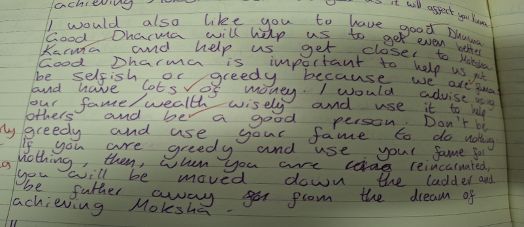 achieving it will affect you
I would also like you to have good Dharma
Good Dharma will help us to get even better
Karma and help us get closer to Moksha.
Good Dharma is important to help us not
be selfish or greedy because we are
and have lots of money. I would advise using
our fame/wealth wisely and use it to help
others and be a good person. Don't be
greedy and use your fame to do nothing
If you are greedy and use your fame for
nothing, then, when you are reincarnated,
you will be moved down the ladder and
be futher away from the dream of
achieving Moksha.